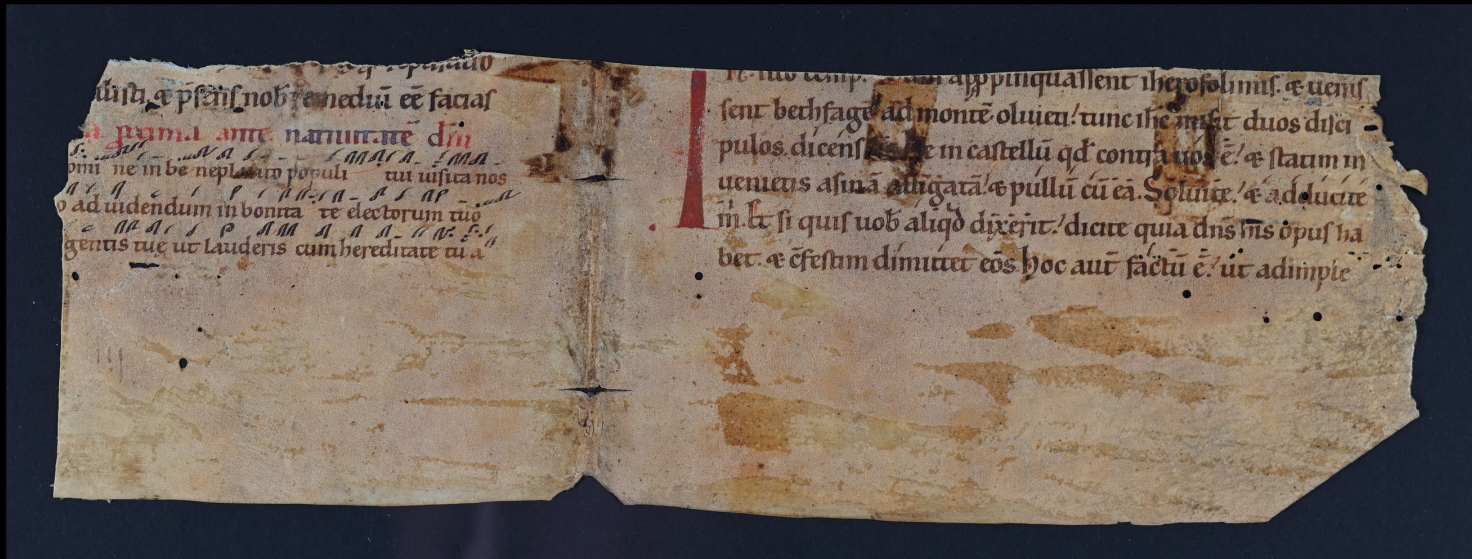 disti. & p̄sens nob̄ remediū eē facias
a prima ante natiuitatē dn̄i
omi ne in be neplacito populi tui uisita nos
o ad uidendum in bonita te electorum tuo
gentis tue ut lauderis cum hereditate tu a
appropinquassent iherosolimis. & uenis
sent bethfage ad montē oliueti! tunc ihc̄ misit duos disci
pulos. dicens in castellū qd̄ contra uos ē! & statim in
uenietis asinā alligatā! & pullū cū eā. Soluite! & adducite
m̄. Et si quis uob̄ aliqd̄ dixerit! dicite quia dn̄s hīs opus ha
bet. & c̄festim dimittet eos hoc aut̄ factū ē! ut adimple